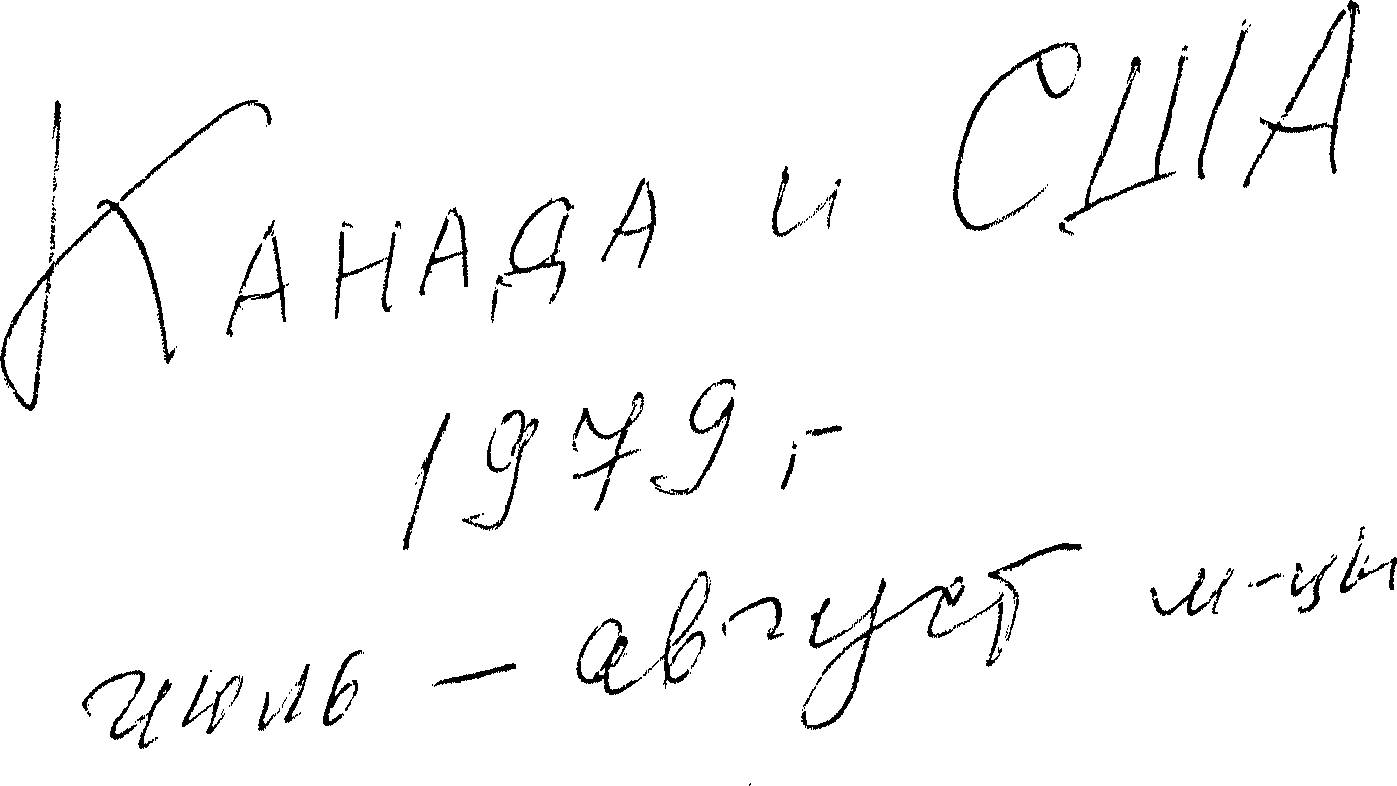 Канада и США
1979 г
июль - август м-цы